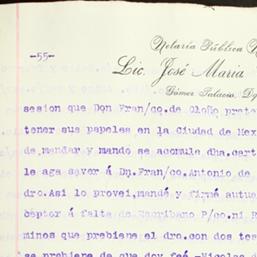 Notaría Pública N
-55-
Lic. José Maria
Gómez Palacio, Dg
sesion que Don Fran/co.de Oloño prete
tener sus papeles en la Ciudad de Mex
de mandar y mando se acomule dha.carta
le aga saver á Dn.Fran/co.Antonio de
dro.Asi lo proveí,mandé y firmé autua
ceptor á falta de Escribano P/co.ni R
minos que prebiene el dro.con dos tes
se prohibe de que doy feé.-Nicolas d